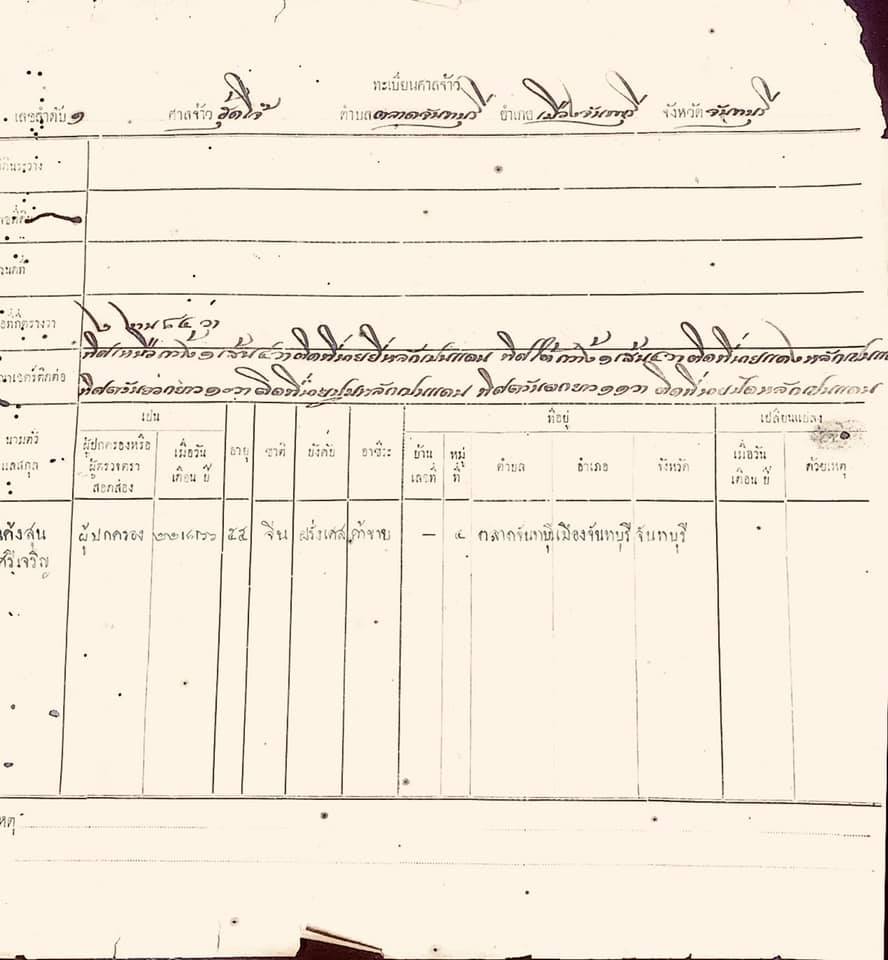 ทะเบียนศาลจ้าว
เลขลำดับ ๑ ศาลจ้าว ตำบล ตลาดจันทบุรี อำเภอ เมืองจันทบุรี จังหวัด จันทบุรี
๒ งาน ๘๔ วา
ทิศเหนือกว้าง ๑ เส้น ๔ วา ติดที่นายยี่หลักเปนแดน ทิศใต้กว้าง ๑ เส้น ๔ วา ติดที่นายแดงหลักเปนแดน
ทิศตวันออกยาว ๑๐ วา ติดที่นายปูนหลักเปนแดน ทิศตวันตกยาว ๑๑ วา ติดที่นายหลักเปนแดน
เปน ที่อยู่ เปลี่ยนแปลง
นามตัว ผู้ปกครองหรือ เมื่อวัน อายุ ชาติ บังคับ อาชีวะ บ้าน หมู่ ตำบล อำเภอ จังหวัด เมื่อวัน ด้วยเหตุ
แลสกุล ผู้ตรวจตรา เดือน ปี เลขที่ ที่ เดือน ปี
สอดส่อง
เค้งสุน ผู้ปกครอง ๕๕ จีน ฝรั่งเศส ค้าขาย — ๔ ตลาดจันทบุรี เมืองจันทบุรี จันทบุรี
ศรีเจริญ